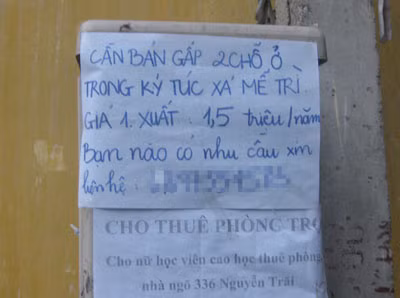 CẦN BÁN GẤP 2 CHỖ Ở
TRONG KÝ TÚC XÁ MỄ TRÌ
GIÁ 1. XUẤT : 1,5 triệu/năm
Bạn nào có nhu cầu xin
liên hệ :
CHO THUÊ PHÒNG TRỌ
Cho nữ học viên cao học thuê phòng
nhà ngõ 336 Nguyễn Trãi